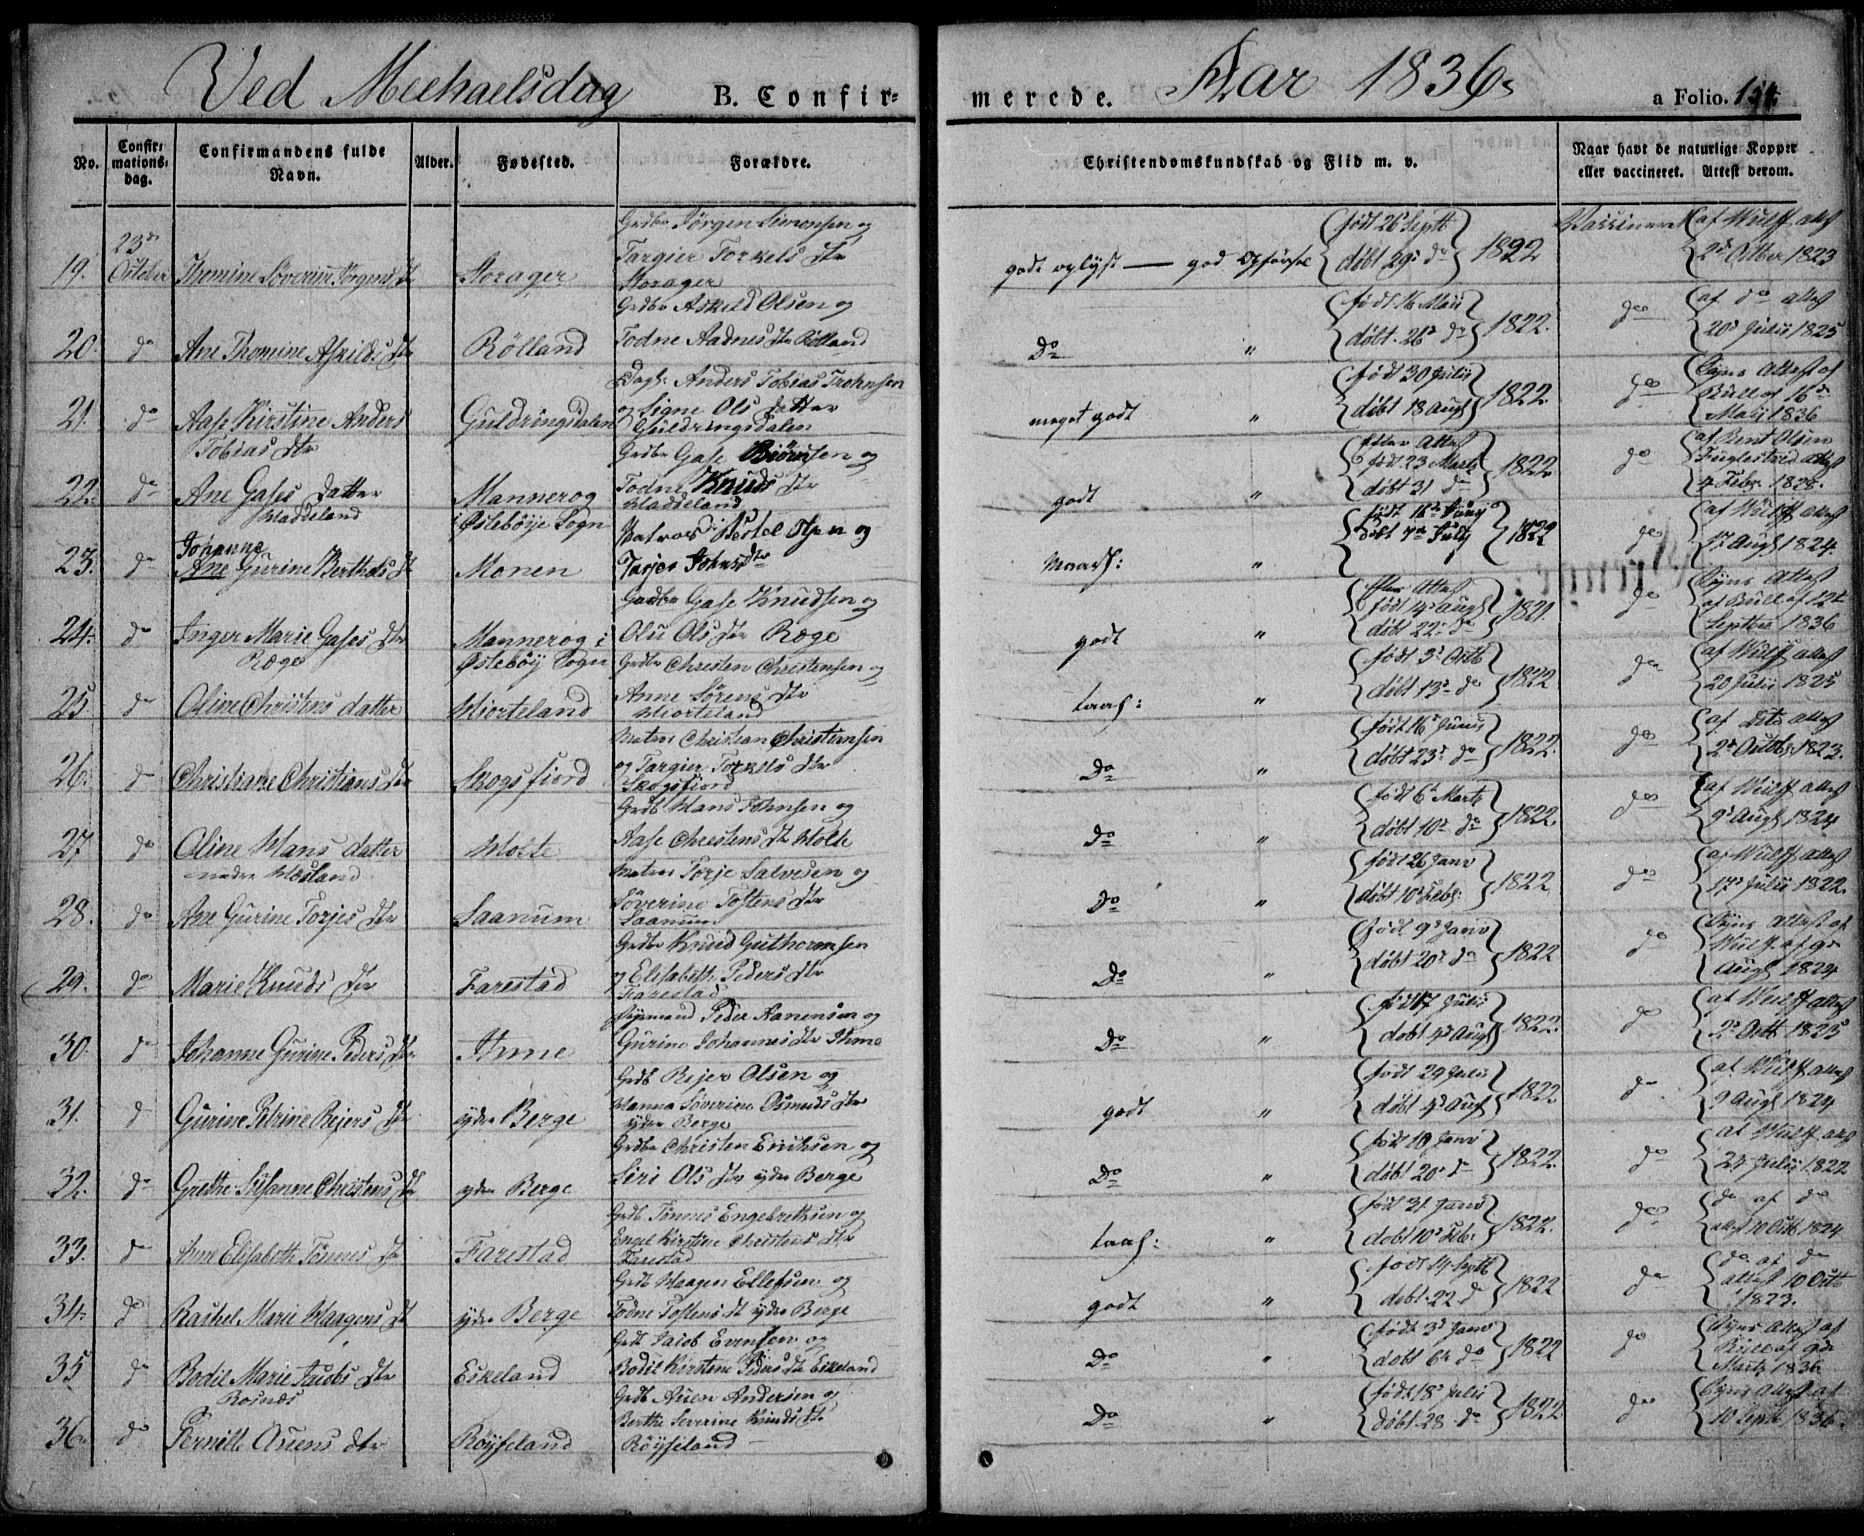 Ved Michaelsdag B. Confir=
merede. Aar 1836.
a Folio.
No.
Confir=
mations=
dag.
Confirmandens fulde
Navn.
Alder.
Fødested.
Forældre.
Christendomskundskab og Flid m. v.
Naar havt de naturlige Kopper
eller vaccineret. Attest derom.
19. 23de October Thomine Severine Jørgens dtr
Grdbr Jørgen Simonsen og
Targier Torkels dtr
godt oplyst — god Opførsel
født 26 Septb
døbt 29d do
1822
Vaccineret
af Wulff attest
2d Octbr 1823
20. do Ane Thomine Askilds dtr Rølland
Grdbr Askild Olsen og
Todne Aadnes dtr Rølland
Do "
født 16 Maii
døbt 26d do
1822.
do
af do attest
20d Julii 1825
21. do Aase Kirstine Anders
Tobias dtr
Guldringsdalen
Anders Tobias
og Signe Ols datter
Guldringsdalen
meget godt "
født 30 Julii
døbt 18 Augt
1822
do
Syns Attest af
Bull af 16de
Maii 1836
22. do Ane Gases datter
Haddeland
Mannerog
i Østebøye Sogn
Grdbr Gase Biørnsen og
Todne Knuds dtr
Haddeland
godt "
efter Attest
født 23 Marts
døbt 31 do
1822
do
af Bent Olsen
Fuglestved attest
4 Febr. 1828.
23. do Johanne
Ane Gurine Berthels dtr
Monen
Bertel Olsen og
Tarjer Johns dtr
"
1822
do
af Wulff attest
17 Augt 1824.
24. do Inger Marie Gases dtr
Røge
Mannerog i
Østebøy Sogn
Grdbr Gase Knudsen og
Olu Ols dtr Røge
godt "
efter Attest
født 14d Augt
døbt 22d do
1821.
do
Syns Attest
af Bull af 12te
Septbr 1836
25. do Oline Christens datter Hiorteland
Grdbr Christen Christensen og
Anne Sørens dtr
Hiorteland
taal: "
født 3d Octb
døbt 13d do
1822
do
af Wulff attest
20 Julii 1825
26. do Christiane Christians dtr Skogsfiord
Matros Christian Christiansen
og Targier Torkels dtr
Skogsfiord
Do "
født 16d Junii
døbt 23d do
1822.
do
af dito attest
2d Octob. 1823.
27. do Oline Hans datter
nedre Høsland
Holte
Grdb Hans Johnsen og
Aase Christens dtr Holte
Do "
født 6d Marts
døbt 10d do
1822.
do
af Wulff attest
9d Augt 1824
28. do Ane Gurine Torjes dtr Saanum
Matros Torje Salvesen og
Severine Tostens dtr
Saanum
Do "
født 26 Janv
døbt 10d Febr.
1822
do
af Wulff attest
17d Julii 1822.
29. do Marie Knuds dtr Farestad
Grdbr Knud Guthormsen
og Elisabeth Peders dtr
Farestad
Do "
født 9d Janv
døbt 20d do
1822
do
Syns Attest af
Wulff af 9de
Augt 1824
30. do Johanne Gurine Peders dtr Ihme
Peder Aanensen og
Gurine Johannes dtr Ihme
Do "
født 17 Julii
døbt 4d Augt
1822.
do
af Wulff attest
2d Octb 1823
31. do Gurine Petrine Rejers dtr ydre Berge
Grdb Rejer Olsen og
Hanna Severine Osmunds dtr
ydre Berge
godt "
født 29 Julii
døbt 4d Augt
1822.
do
af Wulff attest
9 Augt 1824
32. do Grethe Susanne Christens dtr ydre Berge
Grdbr Christen Erichsen og
Siri Ols dtr ydre Berge
Do "
født 10 Janv
døbt 20d do
1822.
do
af Wulff attest
24 Julii 1822
33. do Anne Elisabeth Tønnes dtr Farestad
Grdb Tønnes Engebrethsen og
Engel Kirstine Christens dtr
Farestad
taal: "
født 21 Janv
døbt 10d Feb.
1822.
do
do af do
attest 10 Octb 1824
34. do Rachel Marie Haagens dtr ydre Berge
Grdb Haagen Ellefsen og
Todne Tostens dtr ydre Berge
godt "
født 14 Septb
døbt 22 do
1822
do
do af do
attest 10 Octb
1823.
35 do Bodil Marie Jacobs dtr
Rosnæs
Eskeland
Grdb Jacob Evensen og
Bodil Kirstine Peders dtr Eskeland
Do "
født 3d Janv
døbt 6te do
1822
do
Syns Attest af
Bull af 9de
Marts 1836
36. do Pernille Asens dtr Røyseland
Grdb Asen Andersen og
Berthe Severine Knuds dtr
Røyseland
Do "
født 18d Julii
døbt 28 do
1822
do
Syns Attest af
10 Septb 1836.